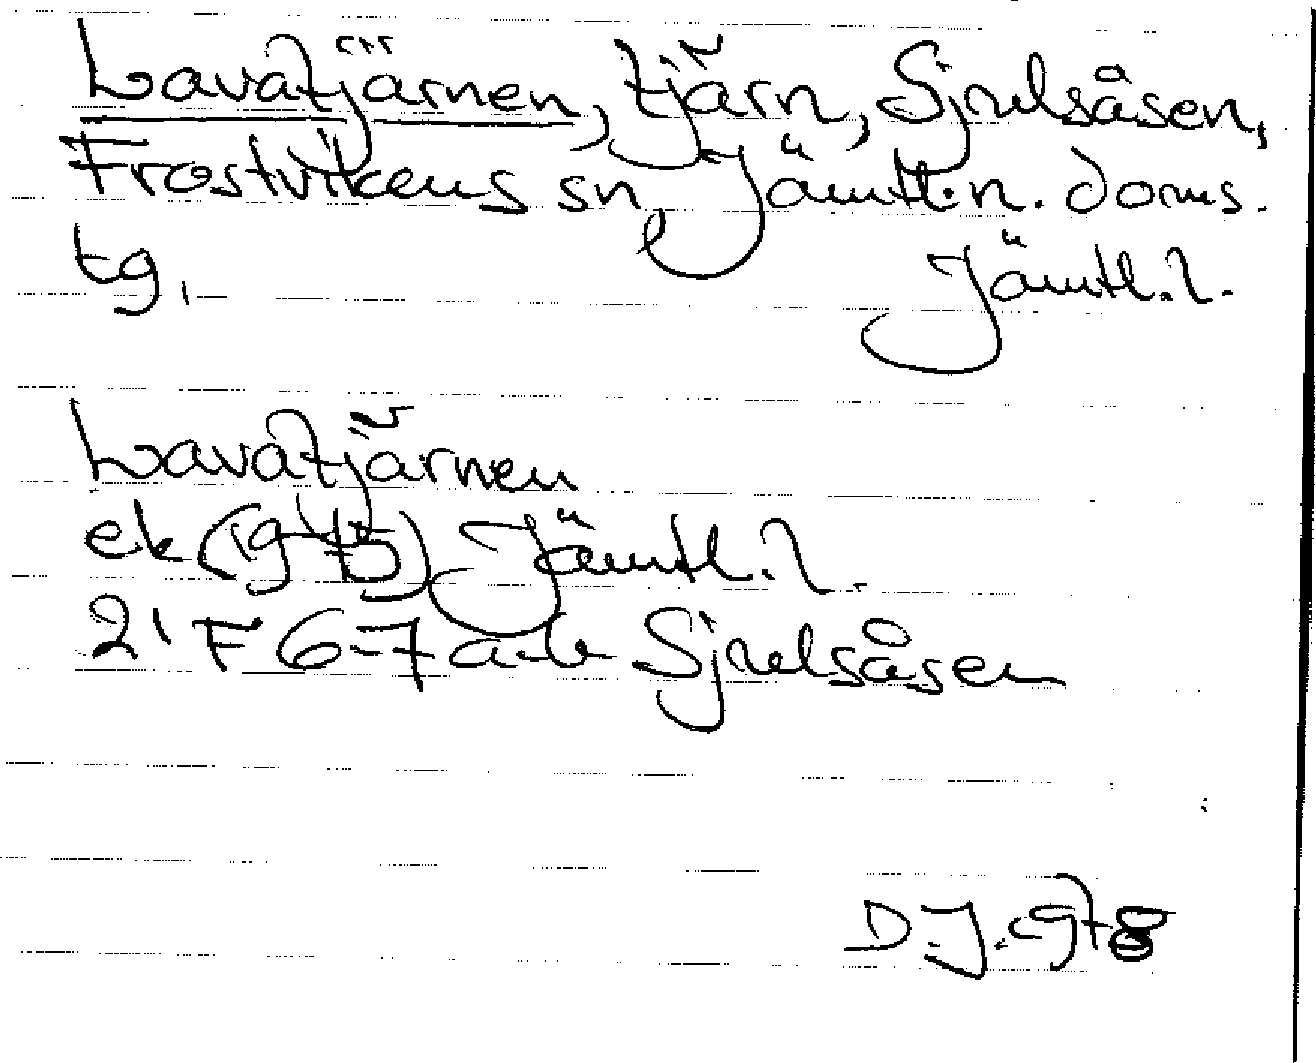 Lavatjärnen, tjärn, Sjulsåsen,
Frostvikens sn, Jämtl.n. doms.
tg.
Jämtl.l.
Lavatjärnen
ek (1945) Jämtl.l.
21 F 6-7 a-b Sjulsåsen
D.J. 1978